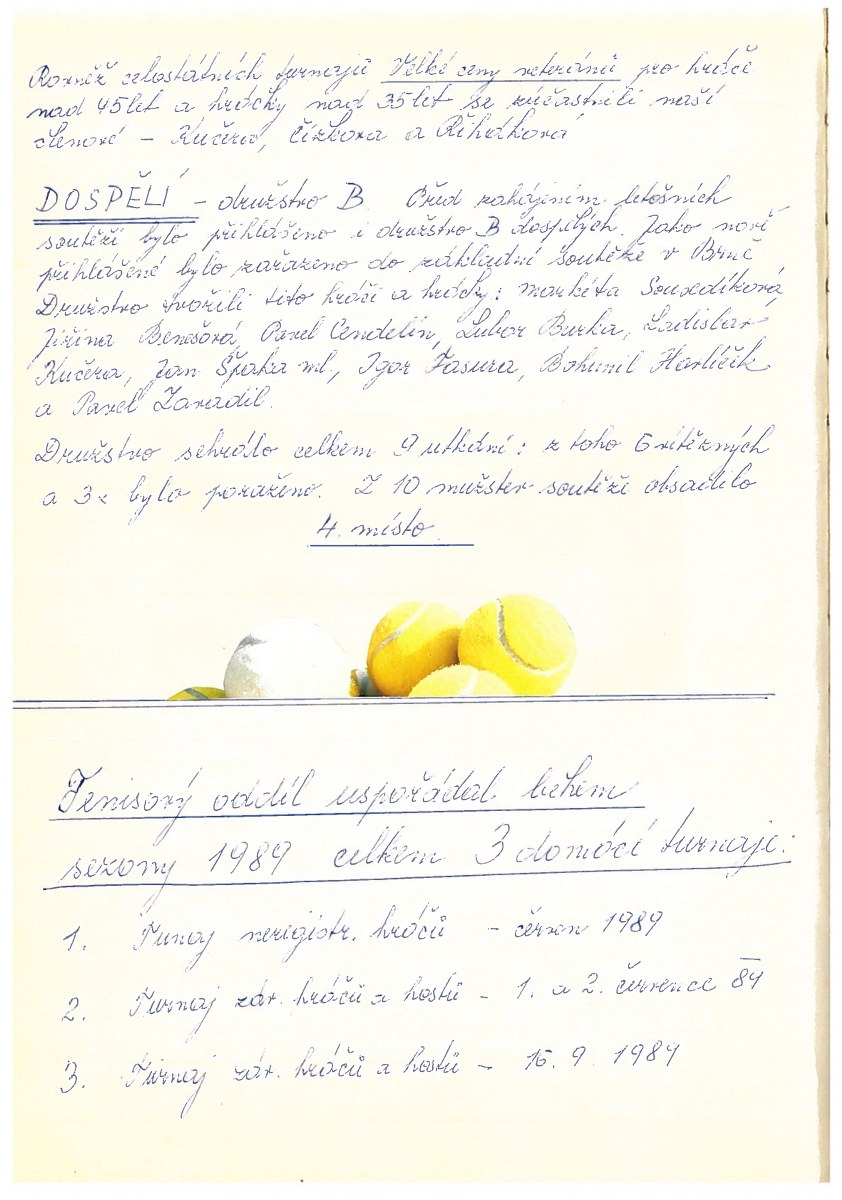 Rovněž celostátních turnajů Velké ceny veteránů pro hráče
nad 45 let a hráčky nad 35 let se zúčastnili naši
členové - Kučera, Čížkova a Řiháková
DOSPĚLÍ - družstvo B. Před zahájením letošních
soutěží bylo přihlášeno i družstvo B dospělých. Jako nově
přihlášené bylo zařazeno do základní soutěže v Brně
Družstvo tvořili tito hráči a hráčky: Markéta Sousedíková,
Jiřina Benešová, Pavel Cendelín, Lubor Burka, Ladislav
Kučera, Jan Špaka ml., Igor Fasura, Bohumil Havlíček
a Pavel Zavadil.
Družstvo sehrálo celkem 9 utkání: z toho 6 vítězných
a 3x bylo poraženo. Z 10 mužstev soutěže obsadilo
4. místo
Tenisový oddíl uspořádal během
sezony 1989 celkem 3 domácí turnaje:
1. Tunaj neregistr. hráčů - červen 1989
2. Turnaj záv. hráčů a hostů - 1. a 2. července 89
3. Turnaj záv. hráčů a hostů - 16. 9. 1989